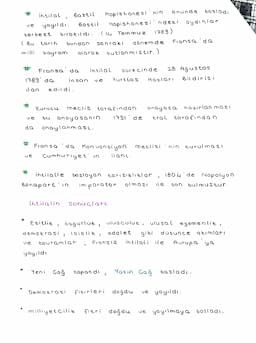 * İhtilal, Bastil Hapishanesi'nin önünde başladı
ve yayıldı. Bastil Hapishanesi'ndeki aydınlar
serbest bırakıldı. (14 Temmuz 1789)
(Bu tarih bundan sonraki dönemde Fransa'da
milli bayram olarak kutlanmıştır.)
* Fransa'da ihtilal sürecinde 28 Ağustos
1789'da İnsan ve Yurttaş Hakları Bildirisi
ilan edildi.
* Kurucu meclis tarafından anayasa hazırlanması
ve bu anayasanın 1791'de kral tarafından
da onaylanması.
* Fransa'da Konvansiyon Meclisi'nin kurulması
ve Cumhuriyet'in ilanı.
* İhtilalle başlayan karışıklıklar, 1804'de Napolyon
Bonapart'ın imparator olması ile son bulmuştur
İhtilalin Sonuçları
* Eşitlik, özgürlük, ulusçuluk, ulusal egemenlik,
demokrasi, laiklik, adalet gibi düşünce akımları
ve kavramlar, Fransız ihtilali ile Avrupa'ya
yayıldı
* Yeni Çağ kapandı, Yakın Çağ başladı.
* Demokrasi fikirleri doğdu ve yayıldı.
* Milliyetçilik fikri doğdu ve yayılmaya başladı.